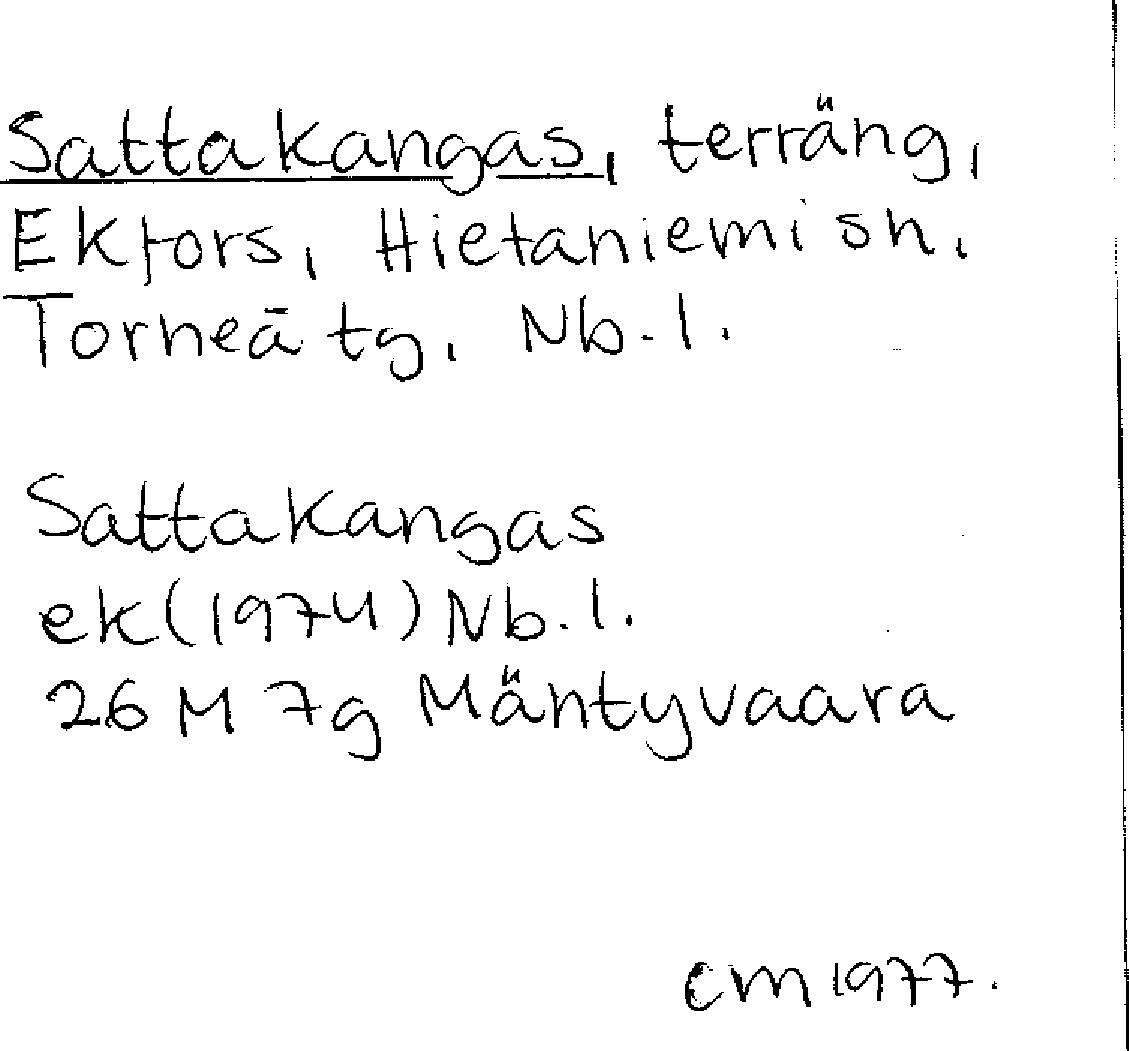 Sattakangas, terräng,
Ekfors, Hietaniemi sn.
Torneå tg. Nb. l.
Sattakangas
ek (1974) Nb. l.
26 M 7g Mäntyvaara
EM 1977.